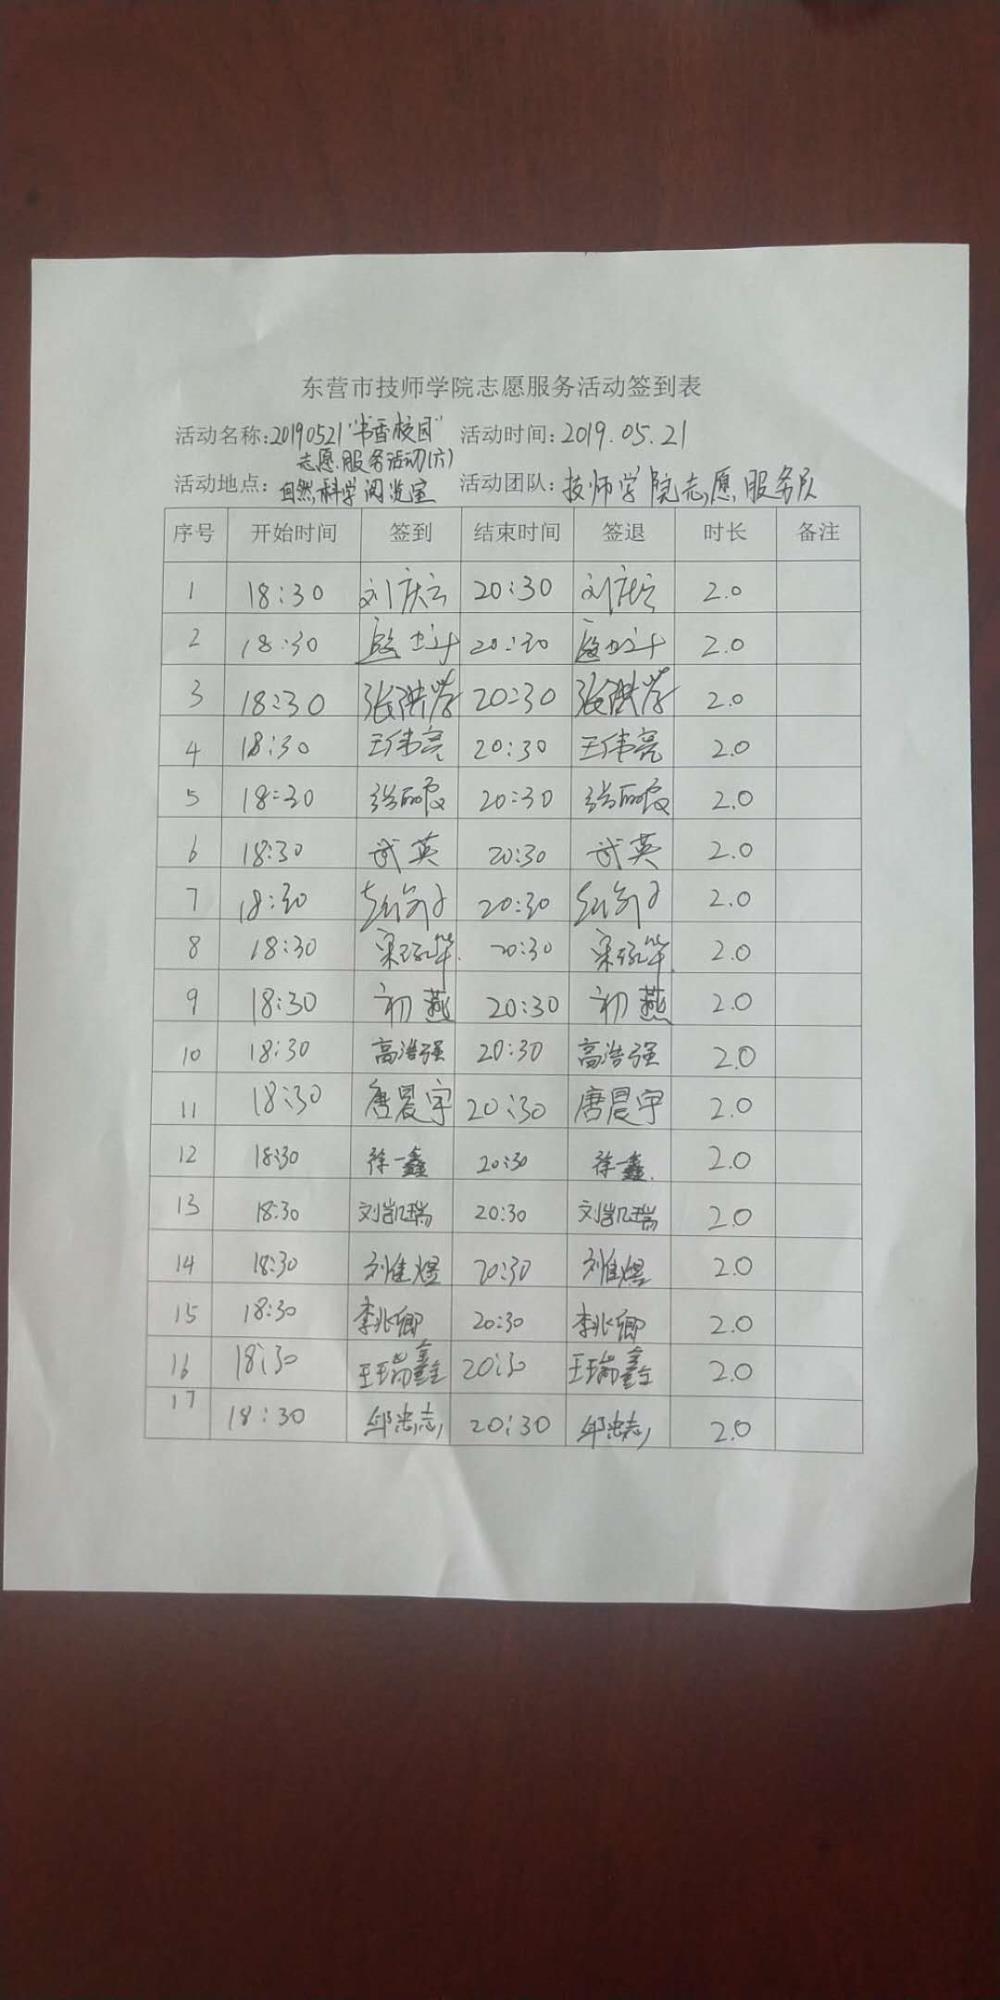 东营市技师学院志愿服务活动签到表
活动名称:20190521"书香校园" 活动时间:2019.05.21
志愿服务活动(六)
活动地点:自然科学阅览室 活动团队:技师学院志愿服务队
序号 开始时间 签到 结束时间 签退 时长 备注
1 18:30 刘庆云 20:30 刘庆云 2.0
2 18:30 20:30 2.0
3 18:30 张洪学 20:30 张洪学 2.0
4 18:30 王伟亮 20:30 王伟亮 2.0
5 18:30 张丽霞 20:30 张丽霞 2.0
6 18:30 武英 20:30 武英 2.0
7 18:30 20:30 2.0
8 18:30 20:30 2.0
9 18:30 初燕 20:30 初燕 2.0
10 18:30 高浩强 20:30 高浩强 2.0
11 18:30 唐晨宇 20:30 唐晨宇 2.0
12 18:30 徐一鑫 20:30 徐一鑫. 2.0
13 18:30 刘凯瑞 20:30 刘凯瑞 2.0
14 18:30 刘佳煜 20:30 刘佳煜 2.0
15 18:30 李兆卿 20:30 李兆卿 2.0
16 18:30 王瑞鑫 20:30 王瑞鑫 2.0
17 18:30 邱忠志 20:30 邱忠志 2.0